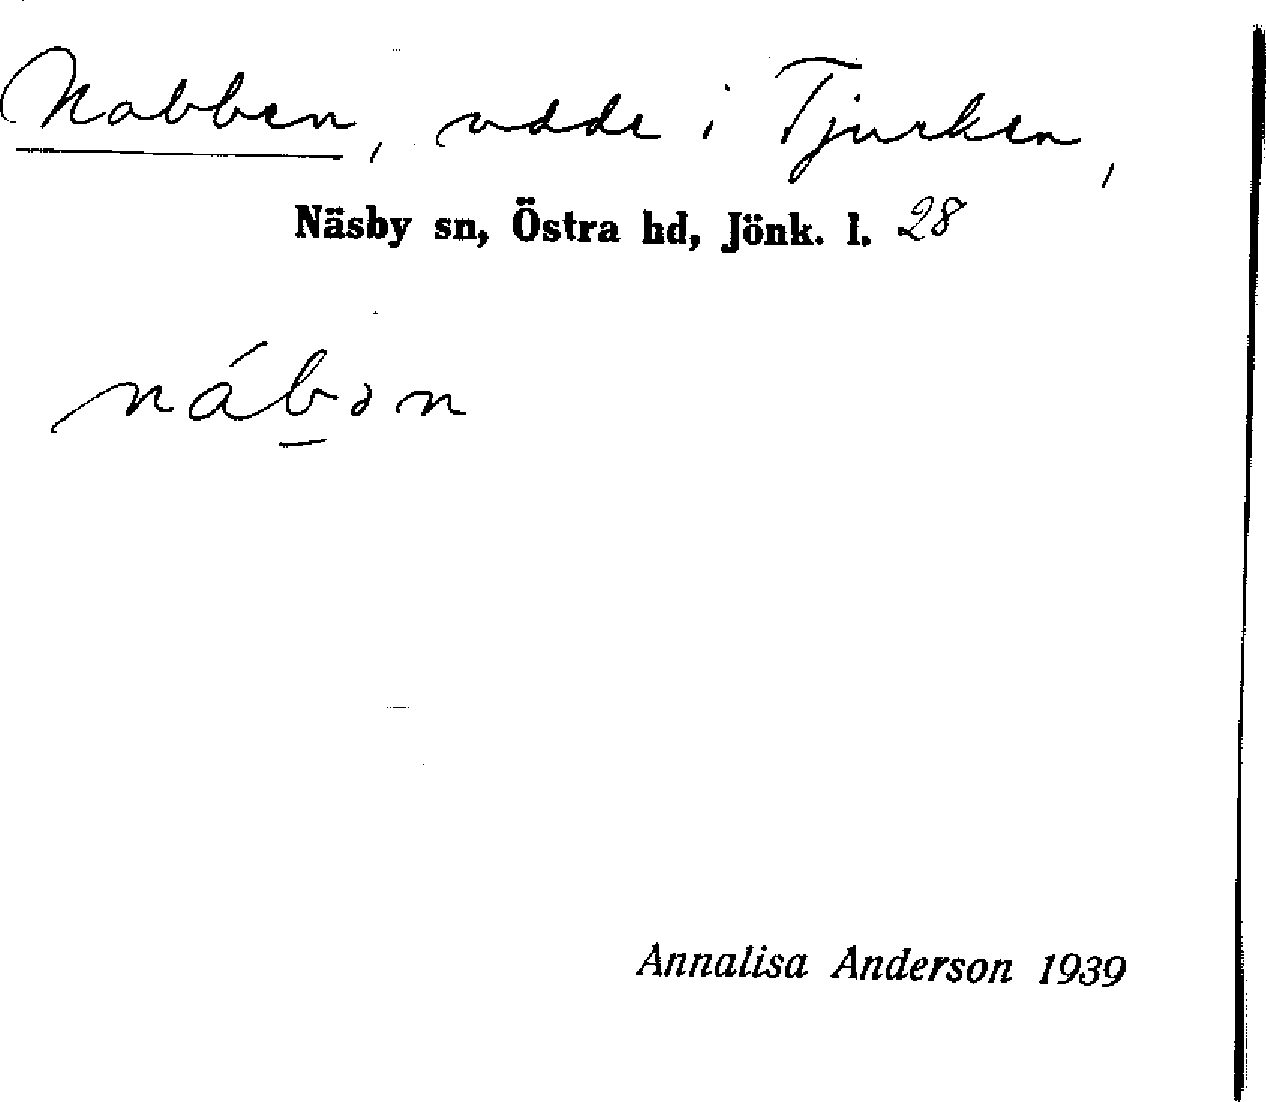 Nabben, udde i Tjurken,
Näsby sn, Östra hd, Jönk. l. 28
náb̲ən
Annalisa Anderson 1939